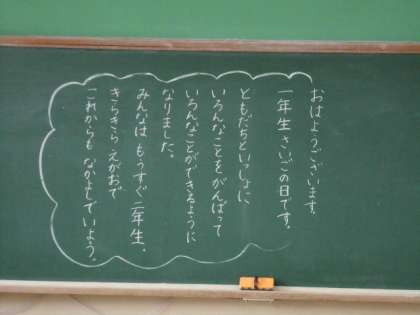 おはようございます。
一年生さいごの日です。
ともだちといっしょに
いろんなことをがんばって
いろんなことができるように
なりました。
みんなは もうすぐ二年生。
きらきら えがおで
これからも なかよしでいよう。